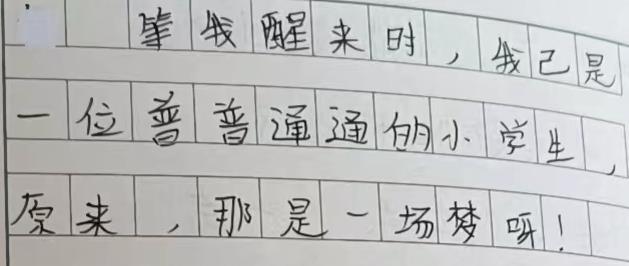 等我醒来时，我己是
一位普普通通的小学生，
原来，那是一场梦呀！